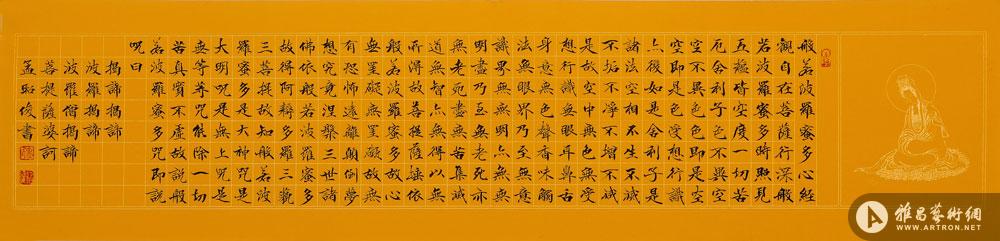 般若波羅蜜多心經
觀自在菩薩行深般
若波羅蜜多時照見
五蘊皆空度一切苦
厄舍利子色不異空
空不異色色即是空
空即是色受想行識
亦復如是舍利子是
諸法空相不生不滅
不垢不淨不增不減
是故空中無色無受
想行識無眼耳鼻舌
身意無色聲香味觸
法無眼界乃至無意
識界無無明亦無無
明盡乃至無老死亦
無老死盡無苦集滅
道無智亦無得以無
所得故菩提薩埵依
般若波羅蜜多故心
無罣礙無罣礙故無
有恐怖遠離顛倒夢
想究竟涅槃三世諸
佛依般若波羅蜜多
故得阿耨多羅三藐
三菩提故知般若波
羅蜜多是大神咒是
大明咒是無上咒是
無等等咒能除一切
苦真實不虛故說般
若波羅蜜多咒即說
咒曰
揭諦揭諦
波羅揭諦
波羅僧揭諦
菩提薩婆訶
孟昭俊書
雅昌藝術網
WWW.ARTRON.NET